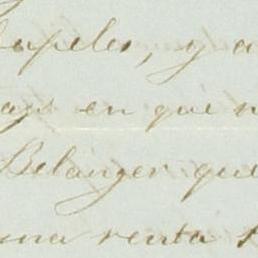 papeles, y a
en que n
Belanger que
una renta